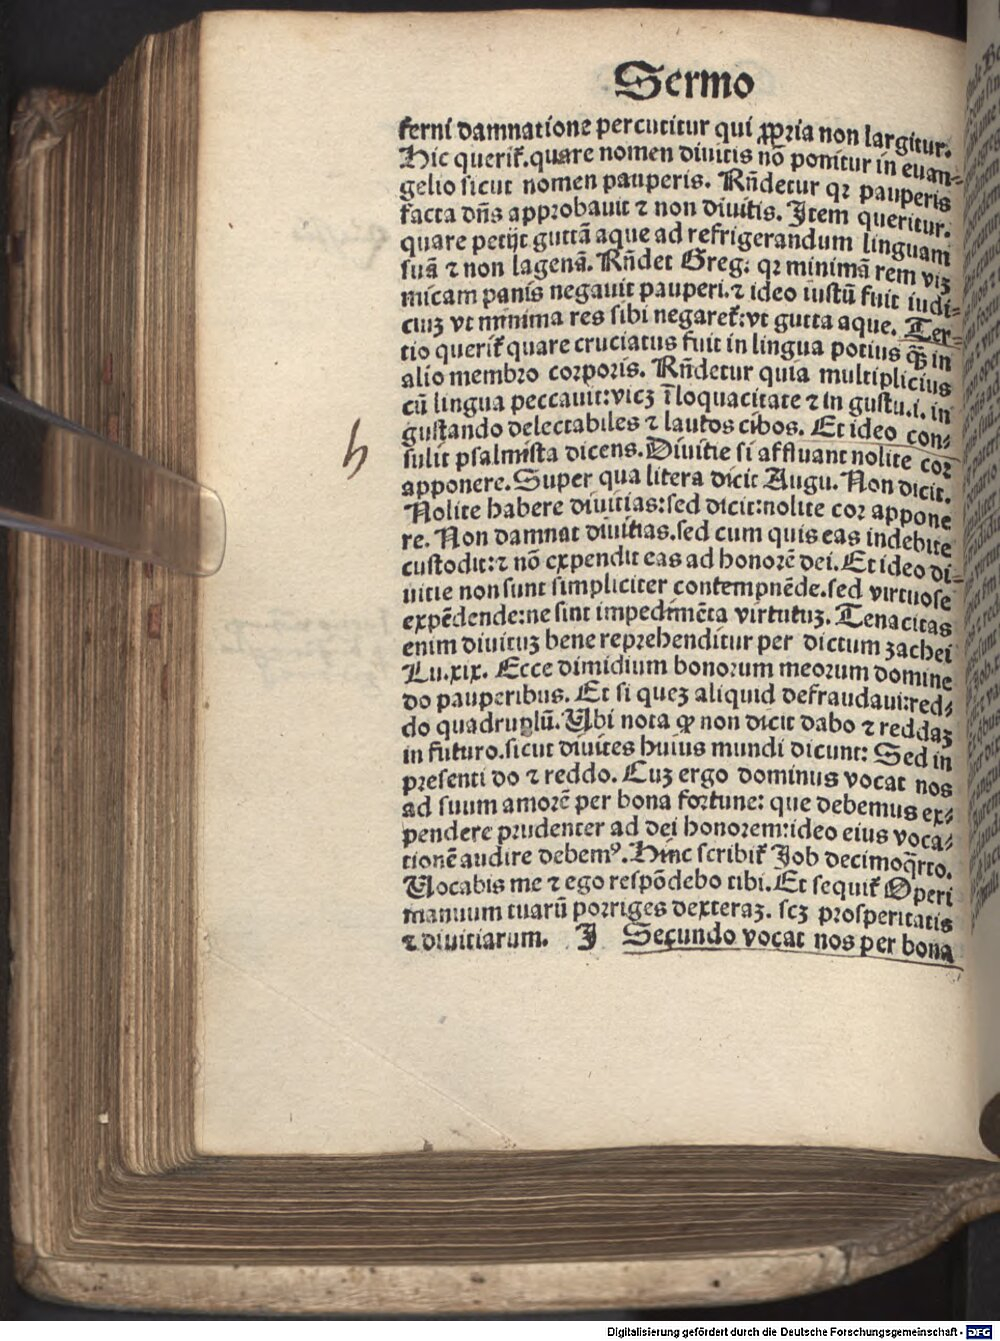 Sermo
ferni damnatione percutitur qui ꝓpria non largitur.
Hic querit᷑.quare nomen diuitis nō ponitur in euan-
gelio sicut nomen pauperis. Rn̄detur qꝛ pauperis
facta dn̄s approbauit ⁊ non diuitis. Item queritur.
quare petijt guttā aque ad refrigerandum linguam
suā ⁊ non lagenā. Rn̄det Greg: qꝛ minimā rem viꝫ
micam panis negauit pauperi.⁊ ideo iustū fuit iudi-
ciuꝫ vt minima res sibi negaret᷑:vt gutta aque. Ter-
tio querit᷑ quare cruciatus fuit in lingua potius qꝫ̄ in
alio membro corporis. Rn̄detur quia multiplicius
cū lingua peccauit:vicꝫ ī loquacitate ⁊ in gustu.i. in
gustando delectabiles ⁊ lautos cibos. Et ideo con-
sulit psalmista dicens.Diuitie si affluant nolite cor
apponere.Super qua litera dicit Augu. Non dicit.
Nolite habere diuitias:sed dicit:nolite cor appone
re. Non damnat diuitias.sed cum quis eas indebite
custodit:⁊ nō expendit eas ad honorē dei.Et ideo di-
uitie non sunt simpliciter contempnēde.sed virtuose
expēdende:ne sint impedimēta virtutuꝫ. Tenacitas
enim diuituꝫ bene reprehenditur per dictum zachei
Lu.xix. Ecce dimidium bonorum meorum domine
do pauperibus. Et si queꝫ aliquid defraudaui:red-
do quadruplū.Ubi nota ꝙ non dicit dabo ⁊ reddaꝫ
in futuro.sicut diuites huius mundi dicunt: Sed in
presenti do ⁊ reddo. Cuꝫ ergo dominus vocat nos
ad suum amorē per bona fortune: que debemus ex-
pendere prudenter ad dei honorem:ideo eius voca-
tionē audire debemꝰ.Hinc scribit᷑ Job decimoq̄rto.
Uocabis me ⁊ ego respōdebo tibi.Et sequit᷑ Operi
manuum tuarū porriges dexteraꝫ. scꝫ prosperitatis
⁊ diuitiarum. I Secundo vocat nos per bona
h
Digitalisierung gefördert durch die Deutsche Forschungsgemeinschaft - DFG